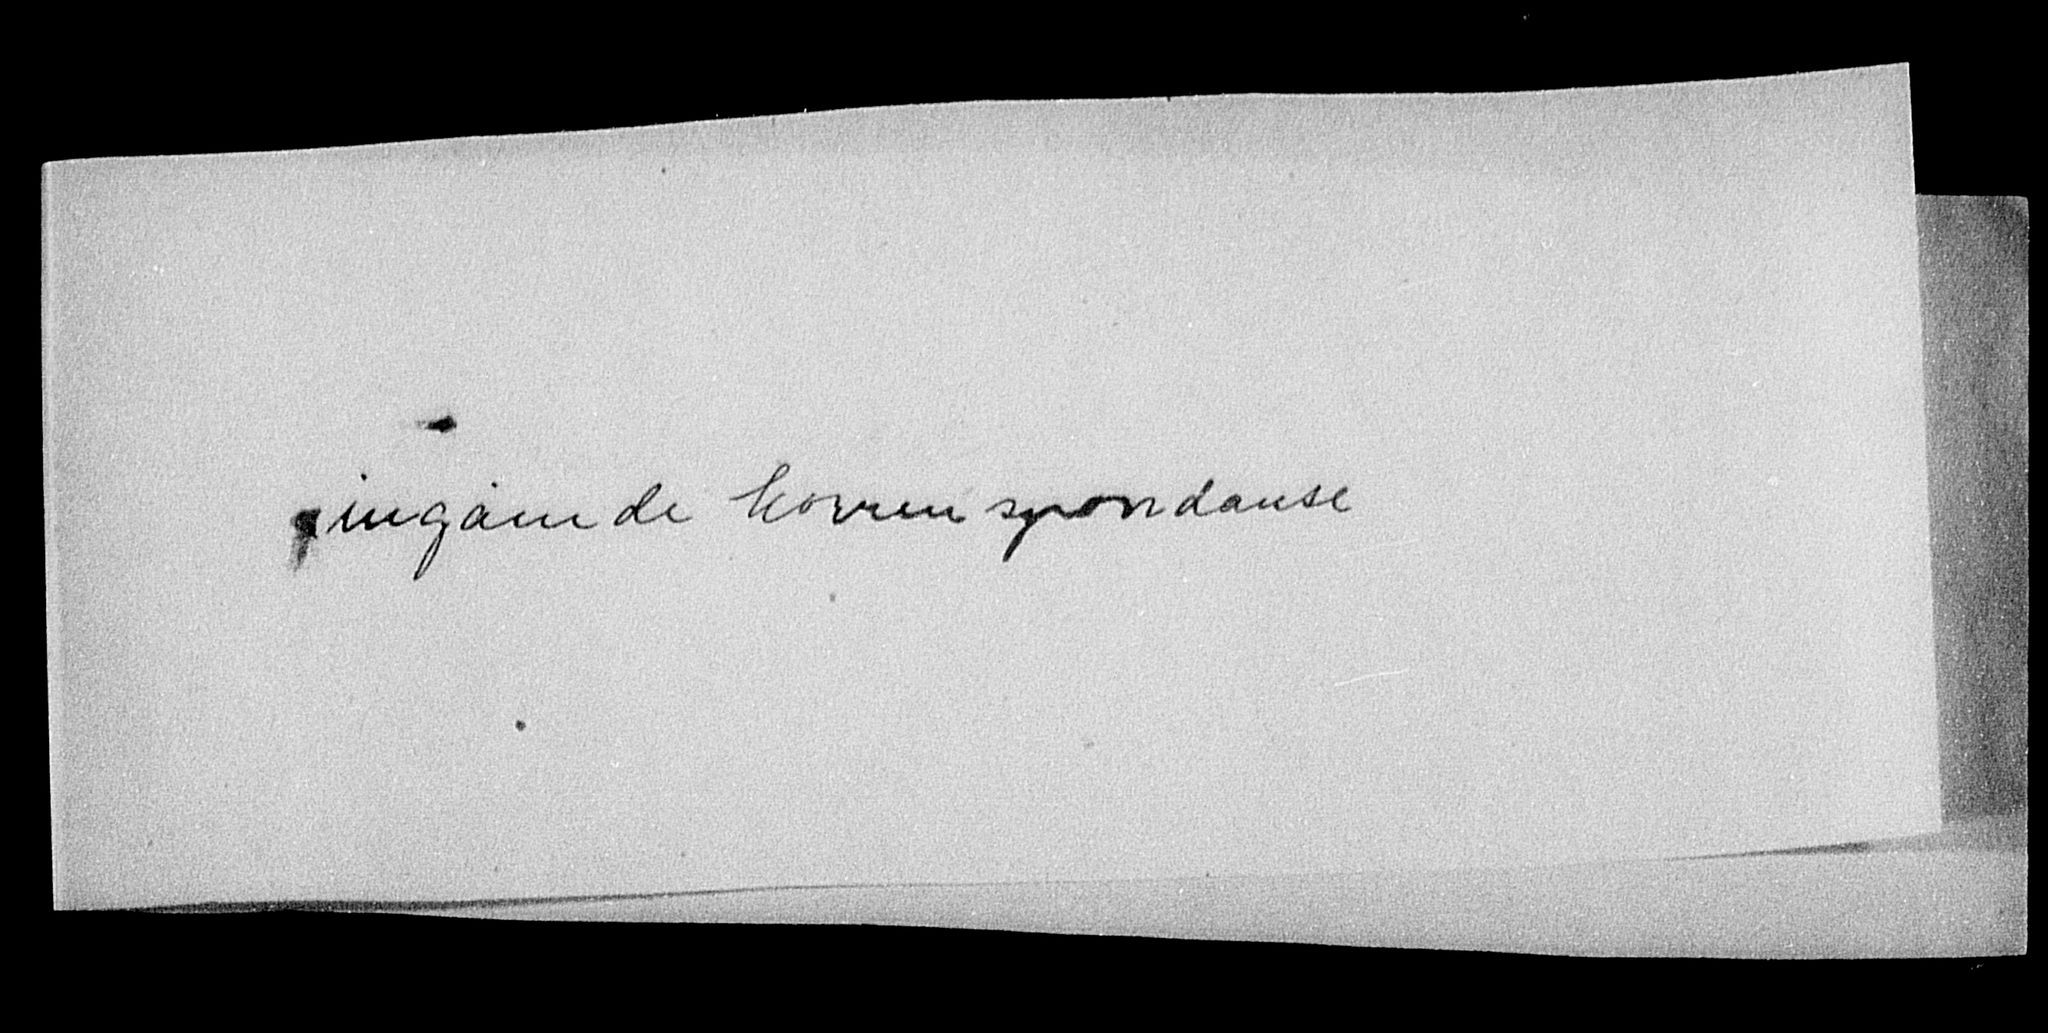 ingåen de korren spondanse